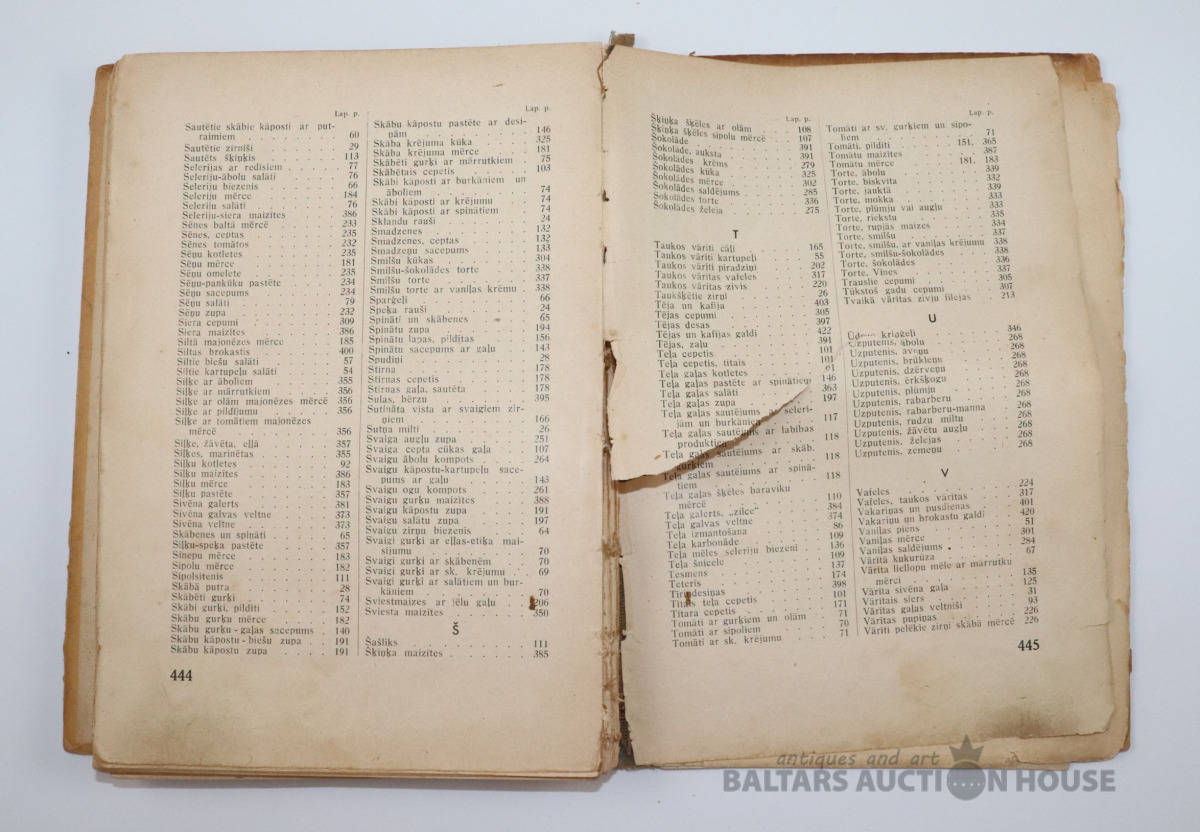 Lap. p.
Sautētie skābie kāposti ar put-
raimiem . . . . . . . 60
Sautētie zirnīši . . . . . 29
Sautēts šķiņķis . . . . . 113
Selerijas ar redīsiem . . . 77
Seleriju-ābolu salāti . . . 76
Seleriju biezenis . . . . . 66
Seleriju mērce . . . . . 184
Seleriju salāti . . . . . 76
Seleriju-siera maizītes . . . 386
Sēnes baltā mērcē . . . . 233
Sēnes, ceptas . . . . . 235
Sēnes tomātos . . . . . 232
Sēņu kotletes . . . . . 235
Sēņu mērce . . . . . 181
Sēņu omelete . . . . . 235
Sēņu-pankūku pastēte . . . 234
Sēņu sacepums . . . . . 234
Sēņu salāti . . . . . 79
Sēņu zupa . . . . . 232
Siera cepumi . . . . . 309
Siera maizītes . . . . . 386
Siltā majonēzes mērce . . . 185
Siltas brokastis . . . . . 400
Siltie biešu salāti . . . . 57
Siltie kartupeļu salāti . . . 54
Siļķe ar āboliem . . . . 355
Siļķe ar mārrutkiem . . . 356
Siļķe ar olām majonēzes mērcē 356
Siļķe ar pildījumu . . . . 356
Siļķe ar tomātiem majonēzes
mērcē . . . . . . . 356
Siļķe, žāvēta, eļļā . . . . 357
Siļķes, marinētas . . . . 355
Siļķu kotletes . . . . . 92
Siļķu maizītes . . . . . 386
Siļķu mērce . . . . . 183
Siļķu pastēte . . . . . 357
Sivēna galerts . . . . . 381
Sivēna galvas veltne . . . 373
Sivēna veltne . . . . . 373
Skābenes un spināti . . . 65
Siļķu-speķa pastēte . . . . 357
Sinepu mērce . . . . . 183
Sīpolu mērce . . . . . 182
Sīpolsitenis . . . . . 111
Skābā putra . . . . . 28
Skābēti gurķi . . . . . 74
Skābi gurķi, pildīti . . . . 152
Skābu gurķu mērce . . . . 182
Skābu gurķu - gaļas sacepums . 140
Skābu kāpostu - biešu zupa . . 191
Skābu kāpostu zupa . . . 191
444
Lap. p.
Skābu kāpostu pastēte ar desi-
ņām . . . . . . . 146
Skāba krējuma kūka . . . 325
Skāba krējuma mērce . . . 181
Skābēti gurķi ar mārrutkiem . 75
Skābētais cepetis . . . . 103
Skābi kāposti ar burkāniem un
āboliem . . . . . . 74
Skābi kāposti ar krējumu . . 74
Skābi kāposti ar spinātiem . . 74
Sklandu rauši . . . . . 24
Smadzenes . . . . . 132
Smadzenes, ceptas . . . . 132
Smadzeņu sacepums . . . 133
Smilšu kūkas . . . . . 304
Smilšu-šokolādes torte . . . 338
Smilšu torte . . . . . 337
Smilšu torte ar vaniļas krēmu . 338
Sparģeļi . . . . . . 66
Speķa rauši . . . . . 24
Spināti un skābenes . . . . 65
Spinātu zupa . . . . . 194
Spinātu lapas, pildītas . . . 156
Spinātu sacepums ar gaļu . . 143
Spudiņi . . . . . . 28
Stirna . . . . . . 178
Stirnas cepetis . . . . . 178
Stirnas gaļa, sautēta . . . 178
Sulas, bērzu . . . . . 395
Sutināta vista ar svaigiem zir-
ņiem . . . . . . 166
Sutņa milti . . . . . 26
Svaiga augļu zupa . . . . 251
Svaiga cepta cūkas gaļa . . 107
Svaigu ābolu kompots . . . 264
Svaigu kāpostu-kartupeļu sace-
pums ar gaļu . . . . 143
Svaigu ogu kompots . . . 261
Svaigu gurķu maizītes . . . 388
Svaigu kāpostu zupa . . . 191
Svaigu salātu zupa . . . . 197
Svaigu zirņu biezenis . . . 64
Svaigi gurķi ar eļļas-etiķa mai-
sījumu . . . . . . 70
Svaigi gurķi ar skābenēm . . 70
Svaigi gurķi ar sk. krējumu . . 69
Svaigi gurķi ar salātiem un bur-
kāniem . . . . . . 70
Sviestmaizes ar jēlu gaļu . . 206
Sviesta maizītes . . . . 350
Š
Šašliks . . . . . . 111
Šķiņķa maizītes . . . . 385
Lap. p.
Šķiņķa šķēles ar olām . . . 108
Šķiņķa šķēles sīpolu mērcē . . 107
Šokolāde . . . . . . 391
Šokolāde, auksta . . . . 391
Šokolādes krēms . . . . 279
Šokolādes kūka . . . . 325
Šokolādes mērce . . . . 302
Šokolādes saldējums . . . 285
Šokolādes torte . . . . 336
Šokolādes želeja . . . . 275
T
Taukos vārīti cāļi . . . . 165
Taukos vārīti kartupeļi . . . 55
Taukos vārīti pīrādziņi . . . 202
Taukos vārītas vafeles . . . 317
Taukos vārītas zivis . . . 220
Taukšķētie zirņi . . . . 26
Tēja un kafija . . . . . 403
Tējas cepumi . . . . . 305
Tējas desas . . . . . 397
Tējas un kafijas galdi . . . 422
Tējas, zaļu . . . . . 391
Teļa cepetis . . . . . 101
Teļa cepetis, tītais . . . . 101
Teļa gaļas kotletes . . . . 91
Teļa gaļas pastēte ar spinātiem 146
Teļa gaļas salāti . . . . 363
Teļa gaļas zupa . . . . 197
Teļa gaļas sautējums ar seleri-
jām un burkāniem . . . 117
Teļa gaļas sautējums ar labības
produktiem . . . . . 118
Teļa gaļas sautējums ar skāb.
gurķiem . . . . . . 118
Teļa gaļas sautējums ar spinā-
tiem . . . . . . . 118
Teļa gaļas šķēles baraviku
mērcē . . . . . . 110
Teļa galerts, „zilce“ . . . 384
Teļa galvas veltne . . . . 374
Teļa izmantošana . . . . 86
Teļa karbonāde . . . . 109
Teļa mēles seleriju biezenī . . 136
Teļa šnicele . . . . . 109
Tesmens . . . . . . 137
Teteris . . . . . . 174
Tītiņdesiņas . . . . . 398
Tītais teļa cepetis . . . . 101
Tītara cepetis . . . . . 171
Tomāti ar gurķiem un olām . 71
Tomāti ar sīpoliem . . . . 70
Tomāti ar sk. krējumu . . . 71
Lap. p.
Tomāti ar sv. gurķiem un sīpo-
liem . . . . . . . 71
Tomāti, pildīti . . . 151, 365
Tomātu maizītes . . . . 387
Tomātu mērce . . . 181, 183
Torte, ābolu . . . . . 339
Torte, biskvīta . . . . . 332
Torte, jauktā . . . . . 339
Torte, mokka . . . . . 333
Torte, plūmju vai augļu . . . 333
Torte, riekstu . . . . . 335
Torte, rupjās maizes . . . 334
Torte, smilšu . . . . . 337
Torte, smilšu, ar vaniļas krējumu 338
Torte, smilšu-šokolādes . . . 338
Torte, šokolādes . . . . 336
Torte, Vīnes . . . . . 337
Trauslie cepumi . . . . 305
Tūkstoš gadu cepumi . . . 307
Tvaikā vārītas zivju filejas . . 213
U
Ūdens kriņģeļi . . . . . 346
Uzputenis, ābolu . . . . 268
Uzputenis, aveņu . . . . 268
Uzputenis, brūkleņu . . . 268
Uzputenis, dzērveņu . . . 268
Uzputenis, ērkšķogu . . . 268
Uzputenis, plūmju . . . . 268
Uzputenis, rabarberu . . . 268
Uzputenis, rabarberu-manna . 268
Uzputenis, rudzu miltu . . . 268
Uzputenis, žāvētu augļu . . 268
Uzputenis, želejas . . . . 268
Uzputenis, zemeņu . . . . 268
V
Vafeles . . . . . . 224
Vafeles, taukos vārītas . . . 317
Vakariņas un pusdienas . . . 401
Vakariņu un brokastu galdi . . 420
Vaniļas piens . . . . . 51
Vaniļas mērce . . . . . 301
Vaniļas saldējums . . . . 284
Vārīta kukurūza . . . . 67
Vārīta liellopu mēle ar mārrutku
mērci . . . . . . 135
Vārīta sivēna gaļa . . . . 125
Vārītais siers . . . . . 31
Vārītas gaļas veltnīši . . . 93
Vārītas pupiņas . . . . 226
Vārīti pelēkie zirņi skābā mērcē 226
445
antiques and art
BALTARS AUCTION HOUSE